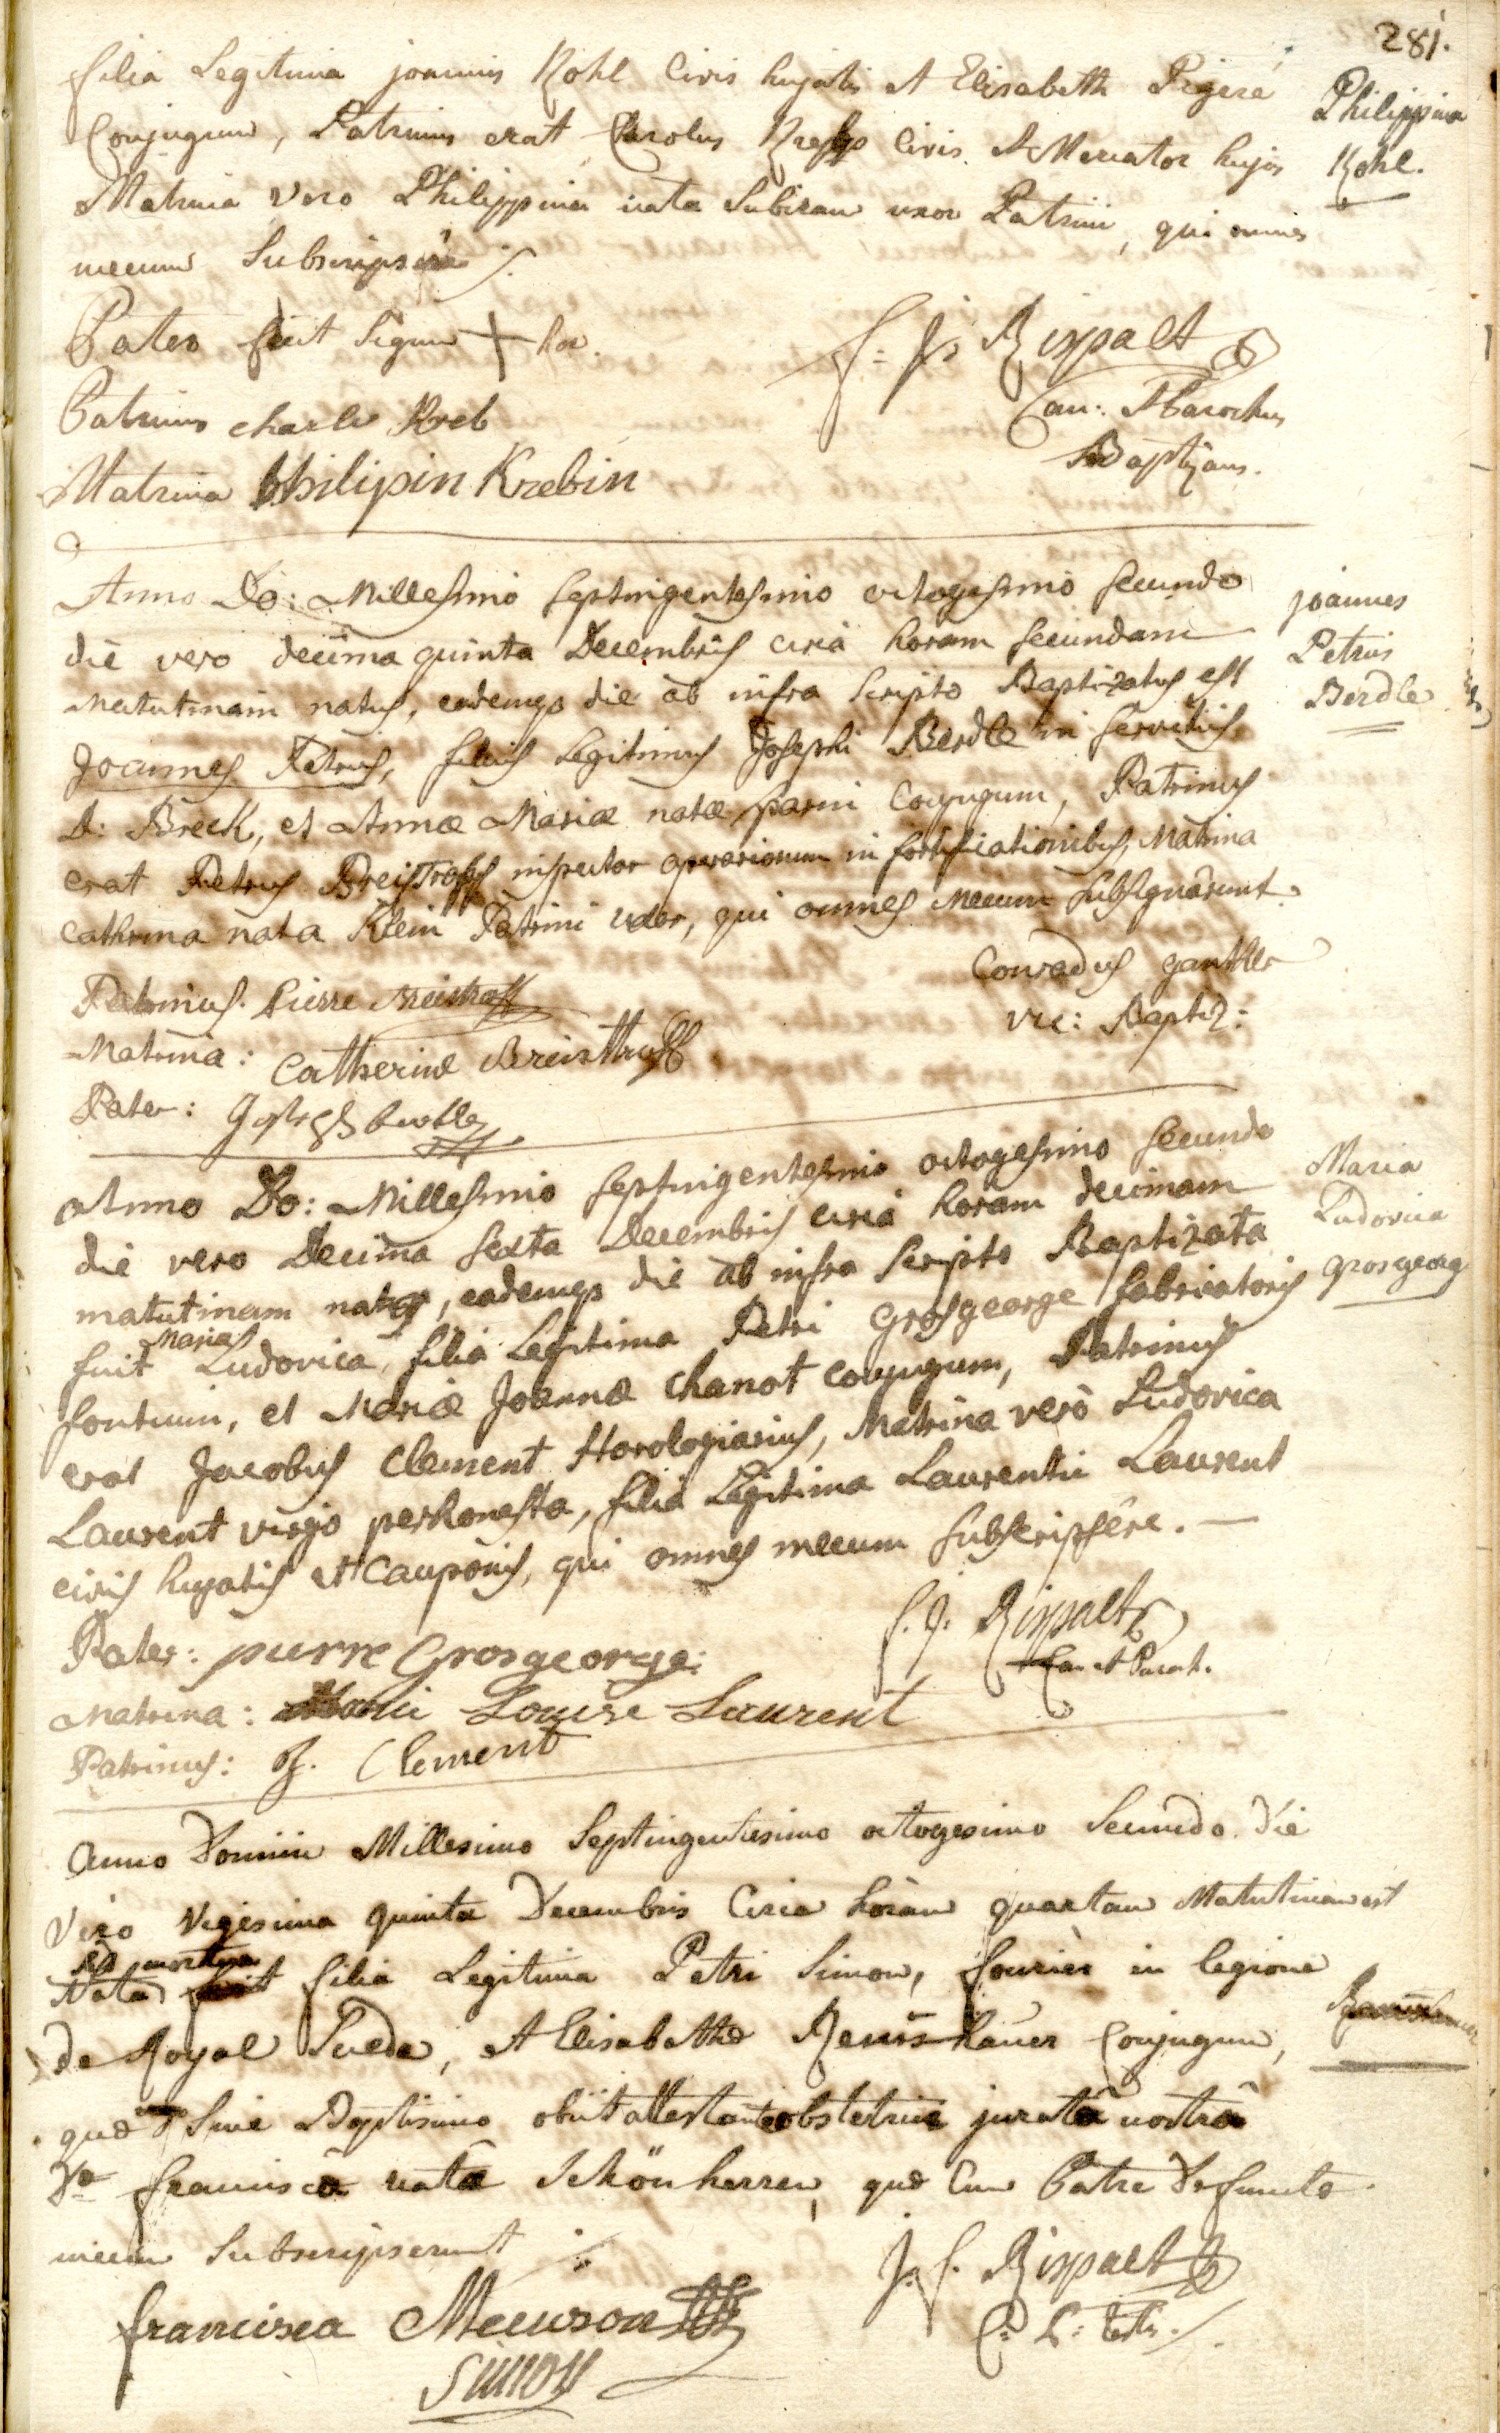 281.
filia Legitima joannis Kohl Civis hujatis et Elisabetth
Conjugum, Patrinus erat Carolus Civis et Mercator hujas
Matrina Vero Philippina nata uxor Patrini, qui omnes
mecum Subscripsere
Philippina
Kohl.
Pater fecit Signum + hoc.
Patrinus charle Kreb
Matrina Philipin Krebin
f: j: Rispalt
Can: Parochus
Baptizans.
Anno Do: Millesimo septingentesimo octogesimo secundo
die vero decima quinta Decembris circa horam secundam
Matutinam natus, eademqs die ab infra scripto Baptizatus est
Joannes Petrus, filius Legitimus Josephi Berdle in servitiis
D: Breck, et Annæ Mariæ natæ Conjugum, Patrinus
erat Petrus Breistroff inspector operariorum in fortificationibus, Matrina
Cathrina nata Klein Patrini uxor, qui omnes mecum subsignârunt.
joannes
Petrus
Berdle
Patrinus. Pierre Breistroff
Matrina: Catherine Breisttroff
Pater:
Conradus ganthler
vic: Baptiz:
Anno Do: Millesimo septingentesimo octogesimo secundo
die vero Decima sexta Decembris circa horam decimam
matutinam nata, eademqs die ab infra scripto Baptizata
fuit Maria Ludovica, filia Legitima Petri Grosgeorge fabricatoris
fontium, et Mariæ Joannæ Chanot Conjugum, Patrinus
erat Jacobus Clement Horologiarius, Matrina verò Ludovica
Laurent virgo perhonesta, filia Legitima Laurentii Laurent
civis hujatis et Cauponis, qui omnes mecum subscripsêre. —
Maria
Ludovica
grosgeorg
Pater: pierre Grosgeorge:
Matrina: Marie Louise Laurent
Patrinus: J. Clement
f. J. Rispalt
Can et Paroch.
Anno Domini Millesimo Septingentesimo octogesimo Secundo die
Vero Vigesima quinta Decembris Circa horam quartam Matutinam est
Nata sed mortua filia Legitima Petri Simon, fourier in legione
de Royal Suede, et Elisabethæ Conjugum,
quæ Sine Baptismo obiit attestante obstetrice jurata nostra
Da francisca nata Schönherren, quæ Cum Patre Defunctæ
mecum Subscripserunt
francisca Meuson
Simon
J. f. Rispalt